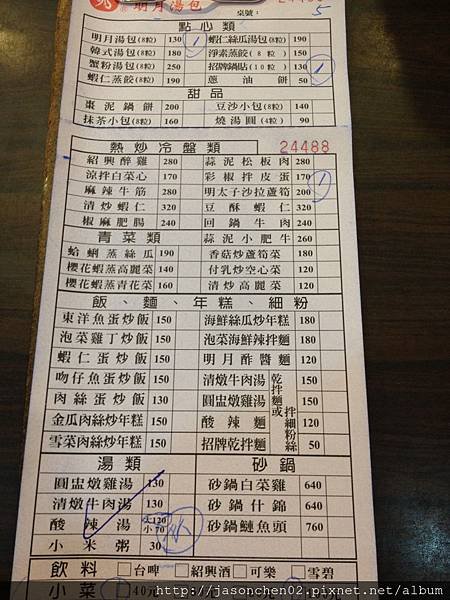 明月湯包
24488
桌號： 5
點心類
明月湯包(8粒) 130 1 蝦仁絲瓜湯包(8粒) 190
韓式湯包(8粒) 180 淨素蒸餃(8粒) 150
蟹粉湯包(8粒) 250 招牌鍋貼(10粒) 130 1
蝦仁蒸餃(8粒) 190 蔥油餅 50
甜品
棗泥鍋餅 200 豆沙小包(8粒) 140
抹茶小包(8粒) 160 燒湯圓(4粒) 90
熱炒冷盤類 24488
紹興醉雞 280 蒜泥松板肉 280
涼拌白菜心 170 彩椒拌皮蛋 170
麻辣牛筋 280 明太子沙拉蘆筍 200 1
清炒蝦仁 320 豆酥蝦仁 320
椒麻肥腸 240 回鍋牛肉 240
青菜類 蒜泥小肥牛 260
蛤蜊蒸絲瓜 190 香菇炒蘆筍菜 180
櫻花蝦蒸高麗菜 140 付乳炒空心菜 120
櫻花蝦蒸青花菜 160 清炒高麗菜 120
飯、麵、年糕、細粉
東洋魚蛋炒飯 150 海鮮絲瓜炒年糕 180
泡菜雞丁炒飯 150 泡菜海鮮辣拌麵 180
蝦仁蛋炒飯 150 明月酢醬麵 120
吻仔魚蛋炒飯 150 清燉牛肉湯 乾拌麵或拌細粉絲 150
肉絲蛋炒飯 130 圓盅燉雞湯 150
金瓜肉絲炒年糕 150 酸辣麵 120
雪菜肉絲炒年糕 150 招牌乾拌麵 50
湯類 砂鍋
圓盅燉雞湯 130 砂鍋白菜雞 640
清燉牛肉湯 130 砂鍋什錦 640
酸辣湯 大120 小70 小1 砂鍋鰱魚頭 760
小米粥 30
飲料 □台啤 □紹興酒 □可樂 □雪碧
小菜 40元
http://jasonchen02.pixnet.net/album